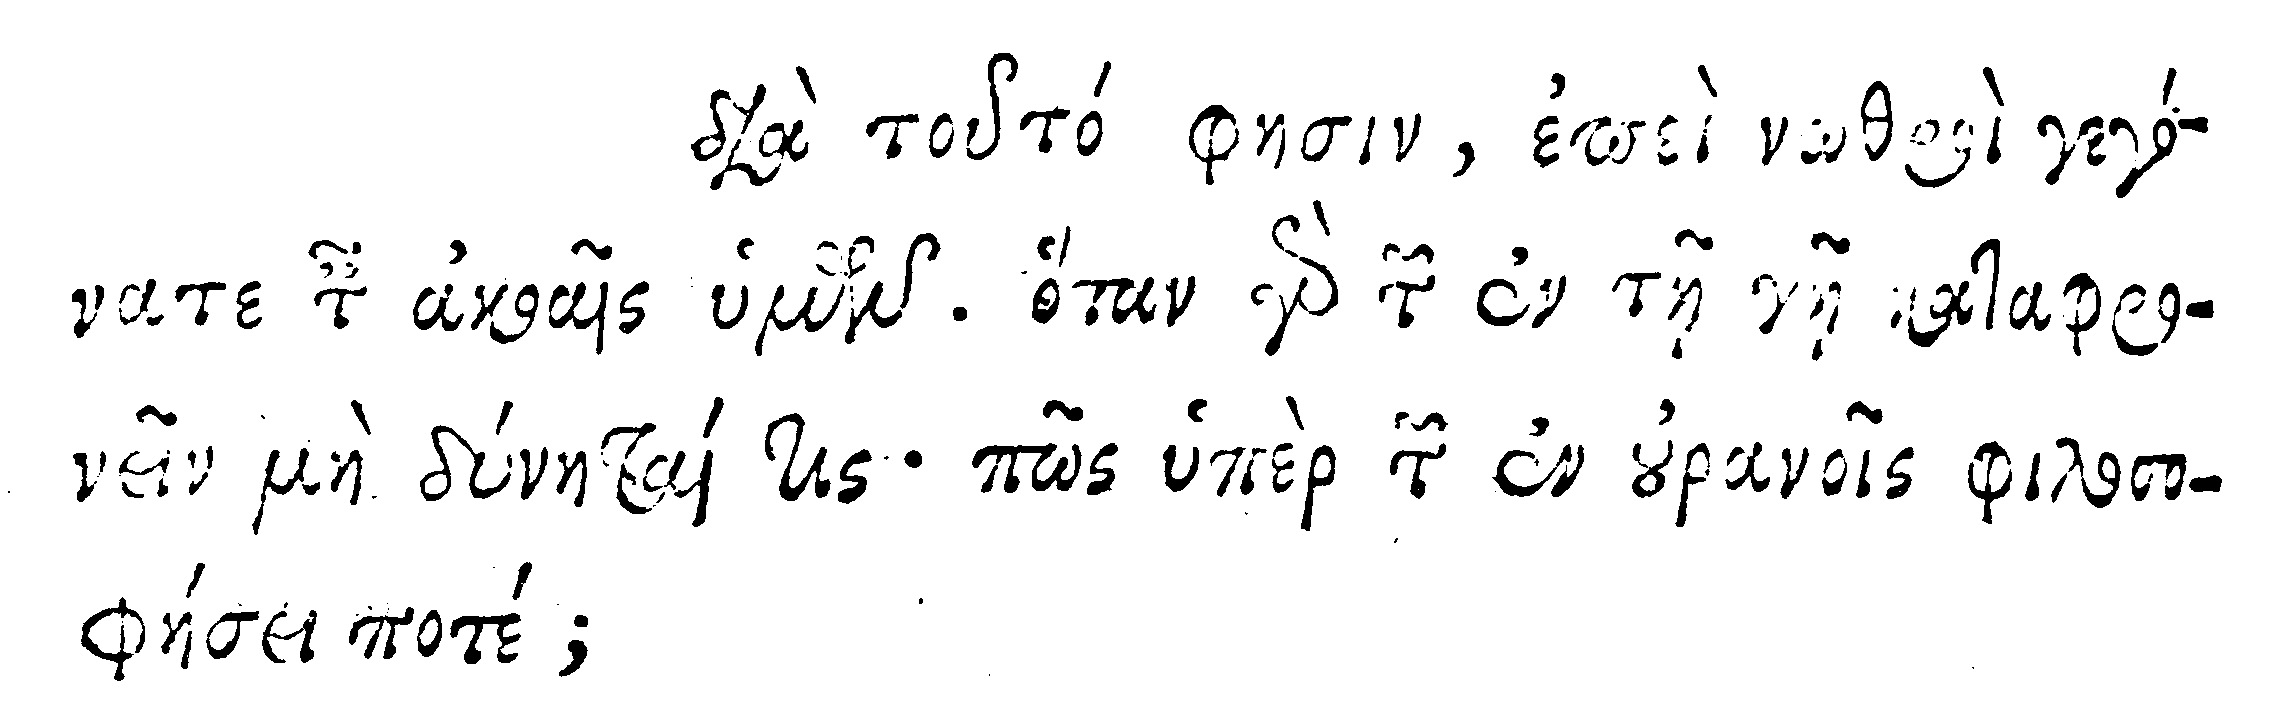 διὰ τοῦτό φησιν, ἐπεὶ νωθροὶ γεγό-
νατε ταῖς ἀκοαῖς ὑμῶν. ὅταν γὰρ τῶν ἐν τῇ γῇ καταφρο-
νεῖν μὴ δύνηταί τις· πῶς ὑπὲρ τῶν ἐν οὐρανοῖς φιλοσο-
φήσει ποτέ;